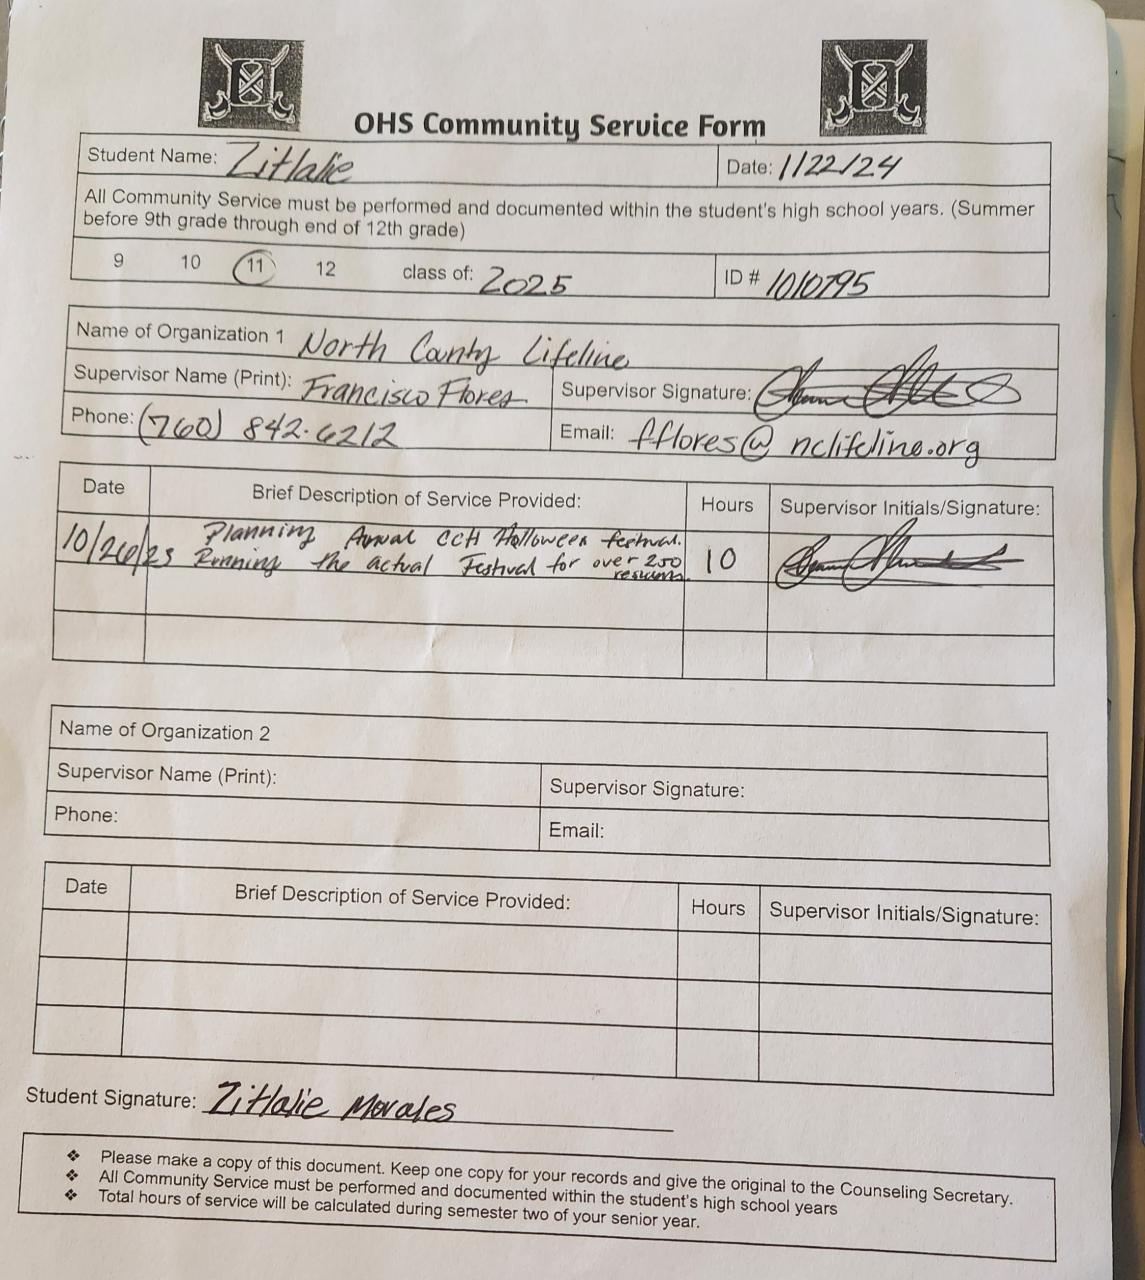 OHS Community Service Form
Student Name: Zitlalie Date: 1/22/24
All Community Service must be performed and documented within the student's high school years. (Summer
before 9th grade through end of 12th grade)
9 10 11 12 class of: 2025 ID # 1010795
Name of Organization 1 North County Lifeline
Supervisor Name (Print): Francisco Flores Supervisor Signature:
Phone: (760) 842-6212 Email: fflores@nclifeline.org
Date Brief Description of Service Provided: Hours Supervisor Initials/Signature:
10/26/23 Planning Annual CCH Halloween festival.
Running the actual Festival for over 250 10
Name of Organization 2
Supervisor Name (Print): Supervisor Signature:
Phone: Email:
Date Brief Description of Service Provided: Hours Supervisor Initials/Signature:
Student Signature: Zitlalie Morales
❖ Please make a copy of this document. Keep one copy for your records and give the original to the Counseling Secretary.
❖ All Community Service must be performed and documented within the student's high school years
❖ Total hours of service will be calculated during semester two of your senior year.